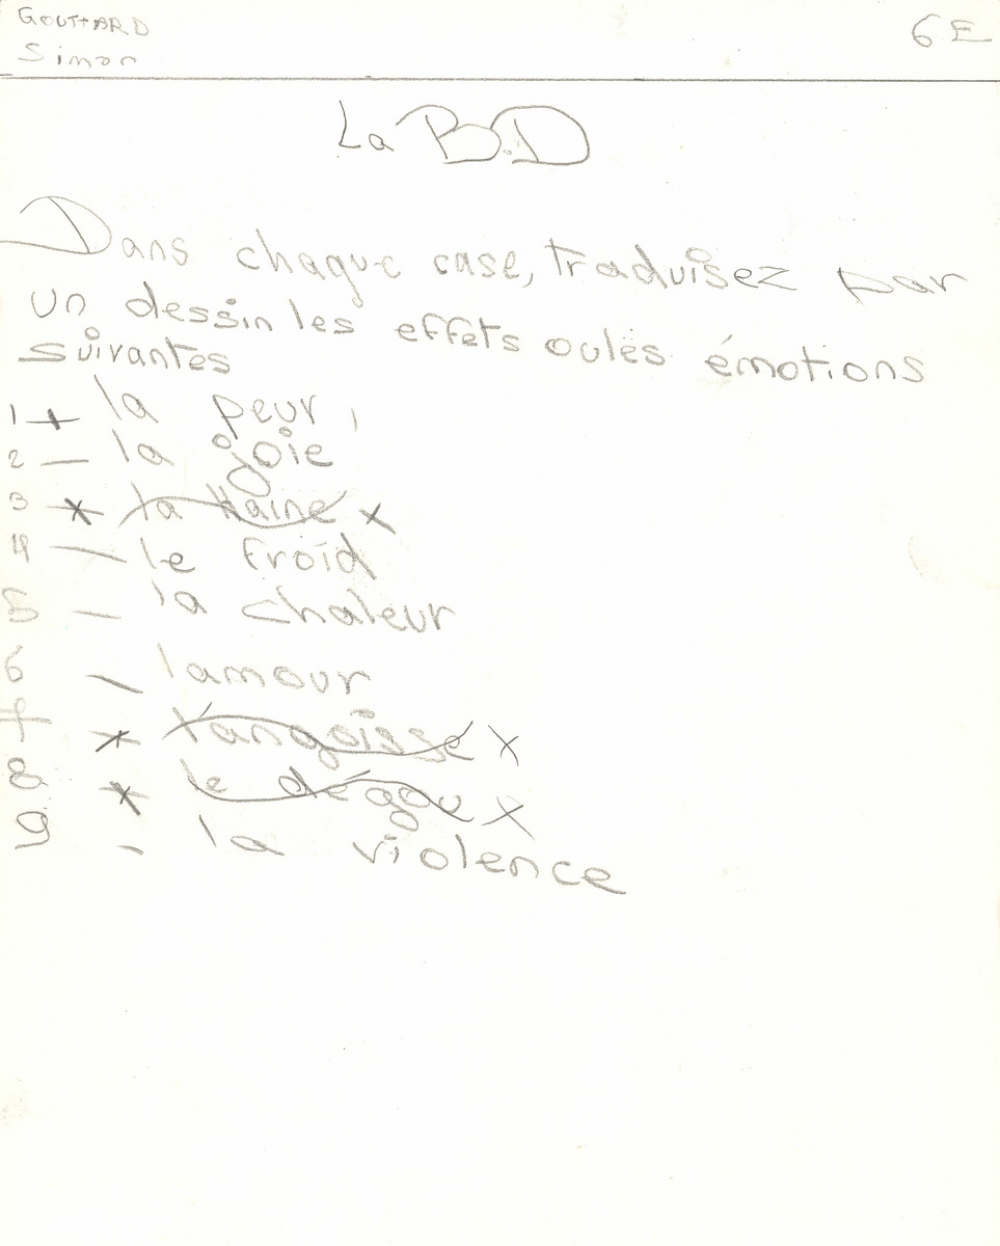 GOUTTARD
Simon
6E
La B.D
Dans chaque case, traduisez par
un dessin les effets oules émotions
suivantes
1 + la peur,
2 — la joie
3 * la Haine x
4 — le froid
5 — la chaleur
6 — lamour
7 * l'angoisse x
8 * le dégou x
9 - la violence